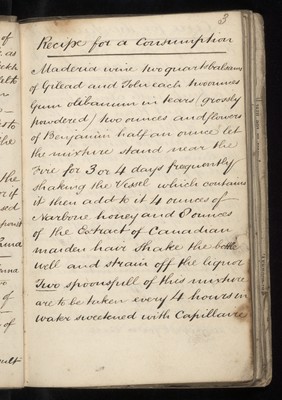 3
Recipe for a Consumption
Maderia wine two quarts balsams
of Gilead and Tolu each two ounces
Gum olibanum in tears (grossly
powdered) two ounces and flowers
of Benjamin half an ounce let
the mixture stand near the
Fire for 3 or 4 days frequently
shaking the Vessel which contains
it then add to it 4 ounces of
Narbone honey and 8 ounces
of the Extract of Canadian
maiden hair shake the bottle
well and strain off the liquor
Two spoonsfull of this mixture
are to be taken every 4 hours in
water sweetened with Capillaire